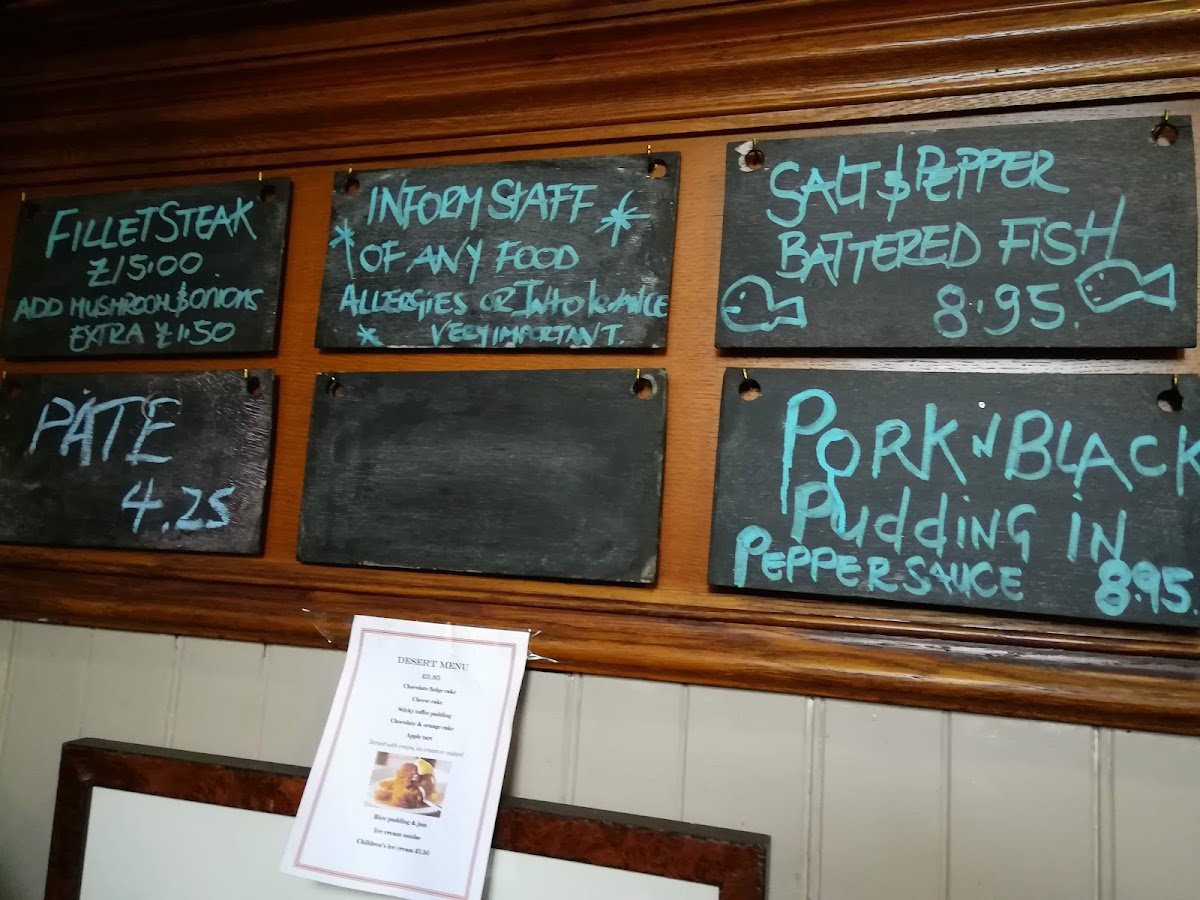 FILLET STEAK
£15.00
ADD MUSHROOM & ONIONS
EXTRA £1.50
INFORM STAFF
OF ANY FOOD
ALLERGIES OR INTOLERANCE
VERY IMPORTANT.
SALT & PEPPER
BATTERED FISH
8.95.
PÂTE
4.25
PORK N BLACK
PUDDING IN
PEPPER SAUCE 8.95
DESERT MENU
£3.95
Chocolate fudge cake
Cheese cake
Sticky toffee pudding
Chocolate & orange cake
Apple tart
Served with cream, ice cream or custard
Rice pudding & jam
Ice cream sundae
Children's ice cream £1.50